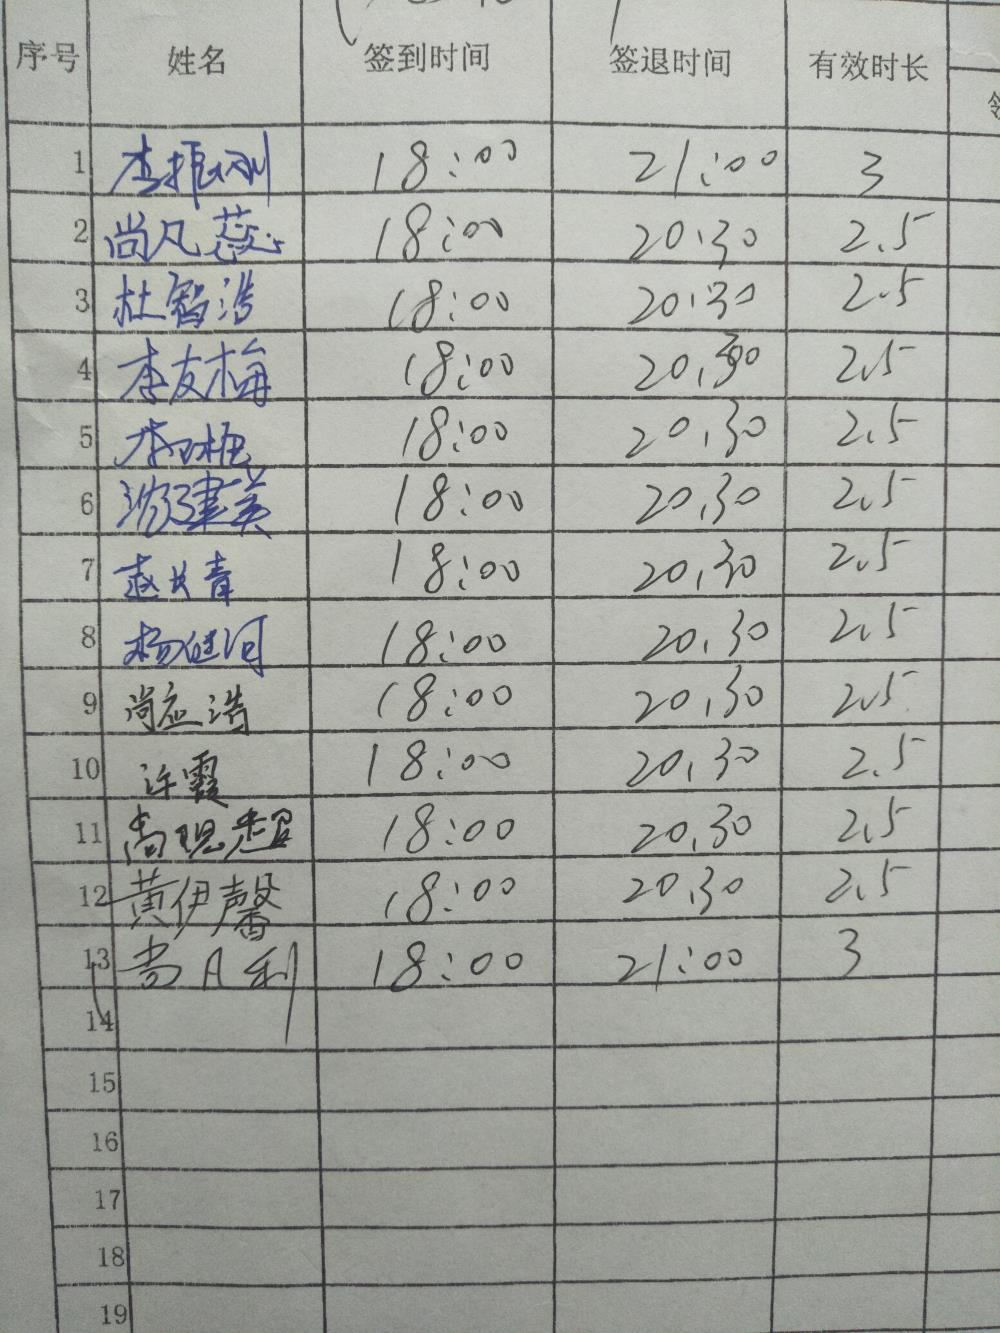 序号 姓名 签到时间 签退时间 有效时长
1 李振刚 18:00 21:00 3
2 尚凡蕊 18:00 20:30 2.5
3 杜智浩 18:00 20:30 2.5
4 李友梅 18:00 20.30 2.5
5 李 18:00 20.30 2.5
6 沈建英 18:00 20.30 2.5
7 赵长青 18:00 20.30 2.5
8 杨健河 18:00 20.30 2.5
9 尚应浩 18:00 20.30 2.5
10 许霞 18:00 20.30 2.5
11 尚现超 18:00 20.30 2.5
12 黄伊馨 18:00 20.30 2.5
13 尚凡利 18:00 21:00 3
14
15
16
17
18
19